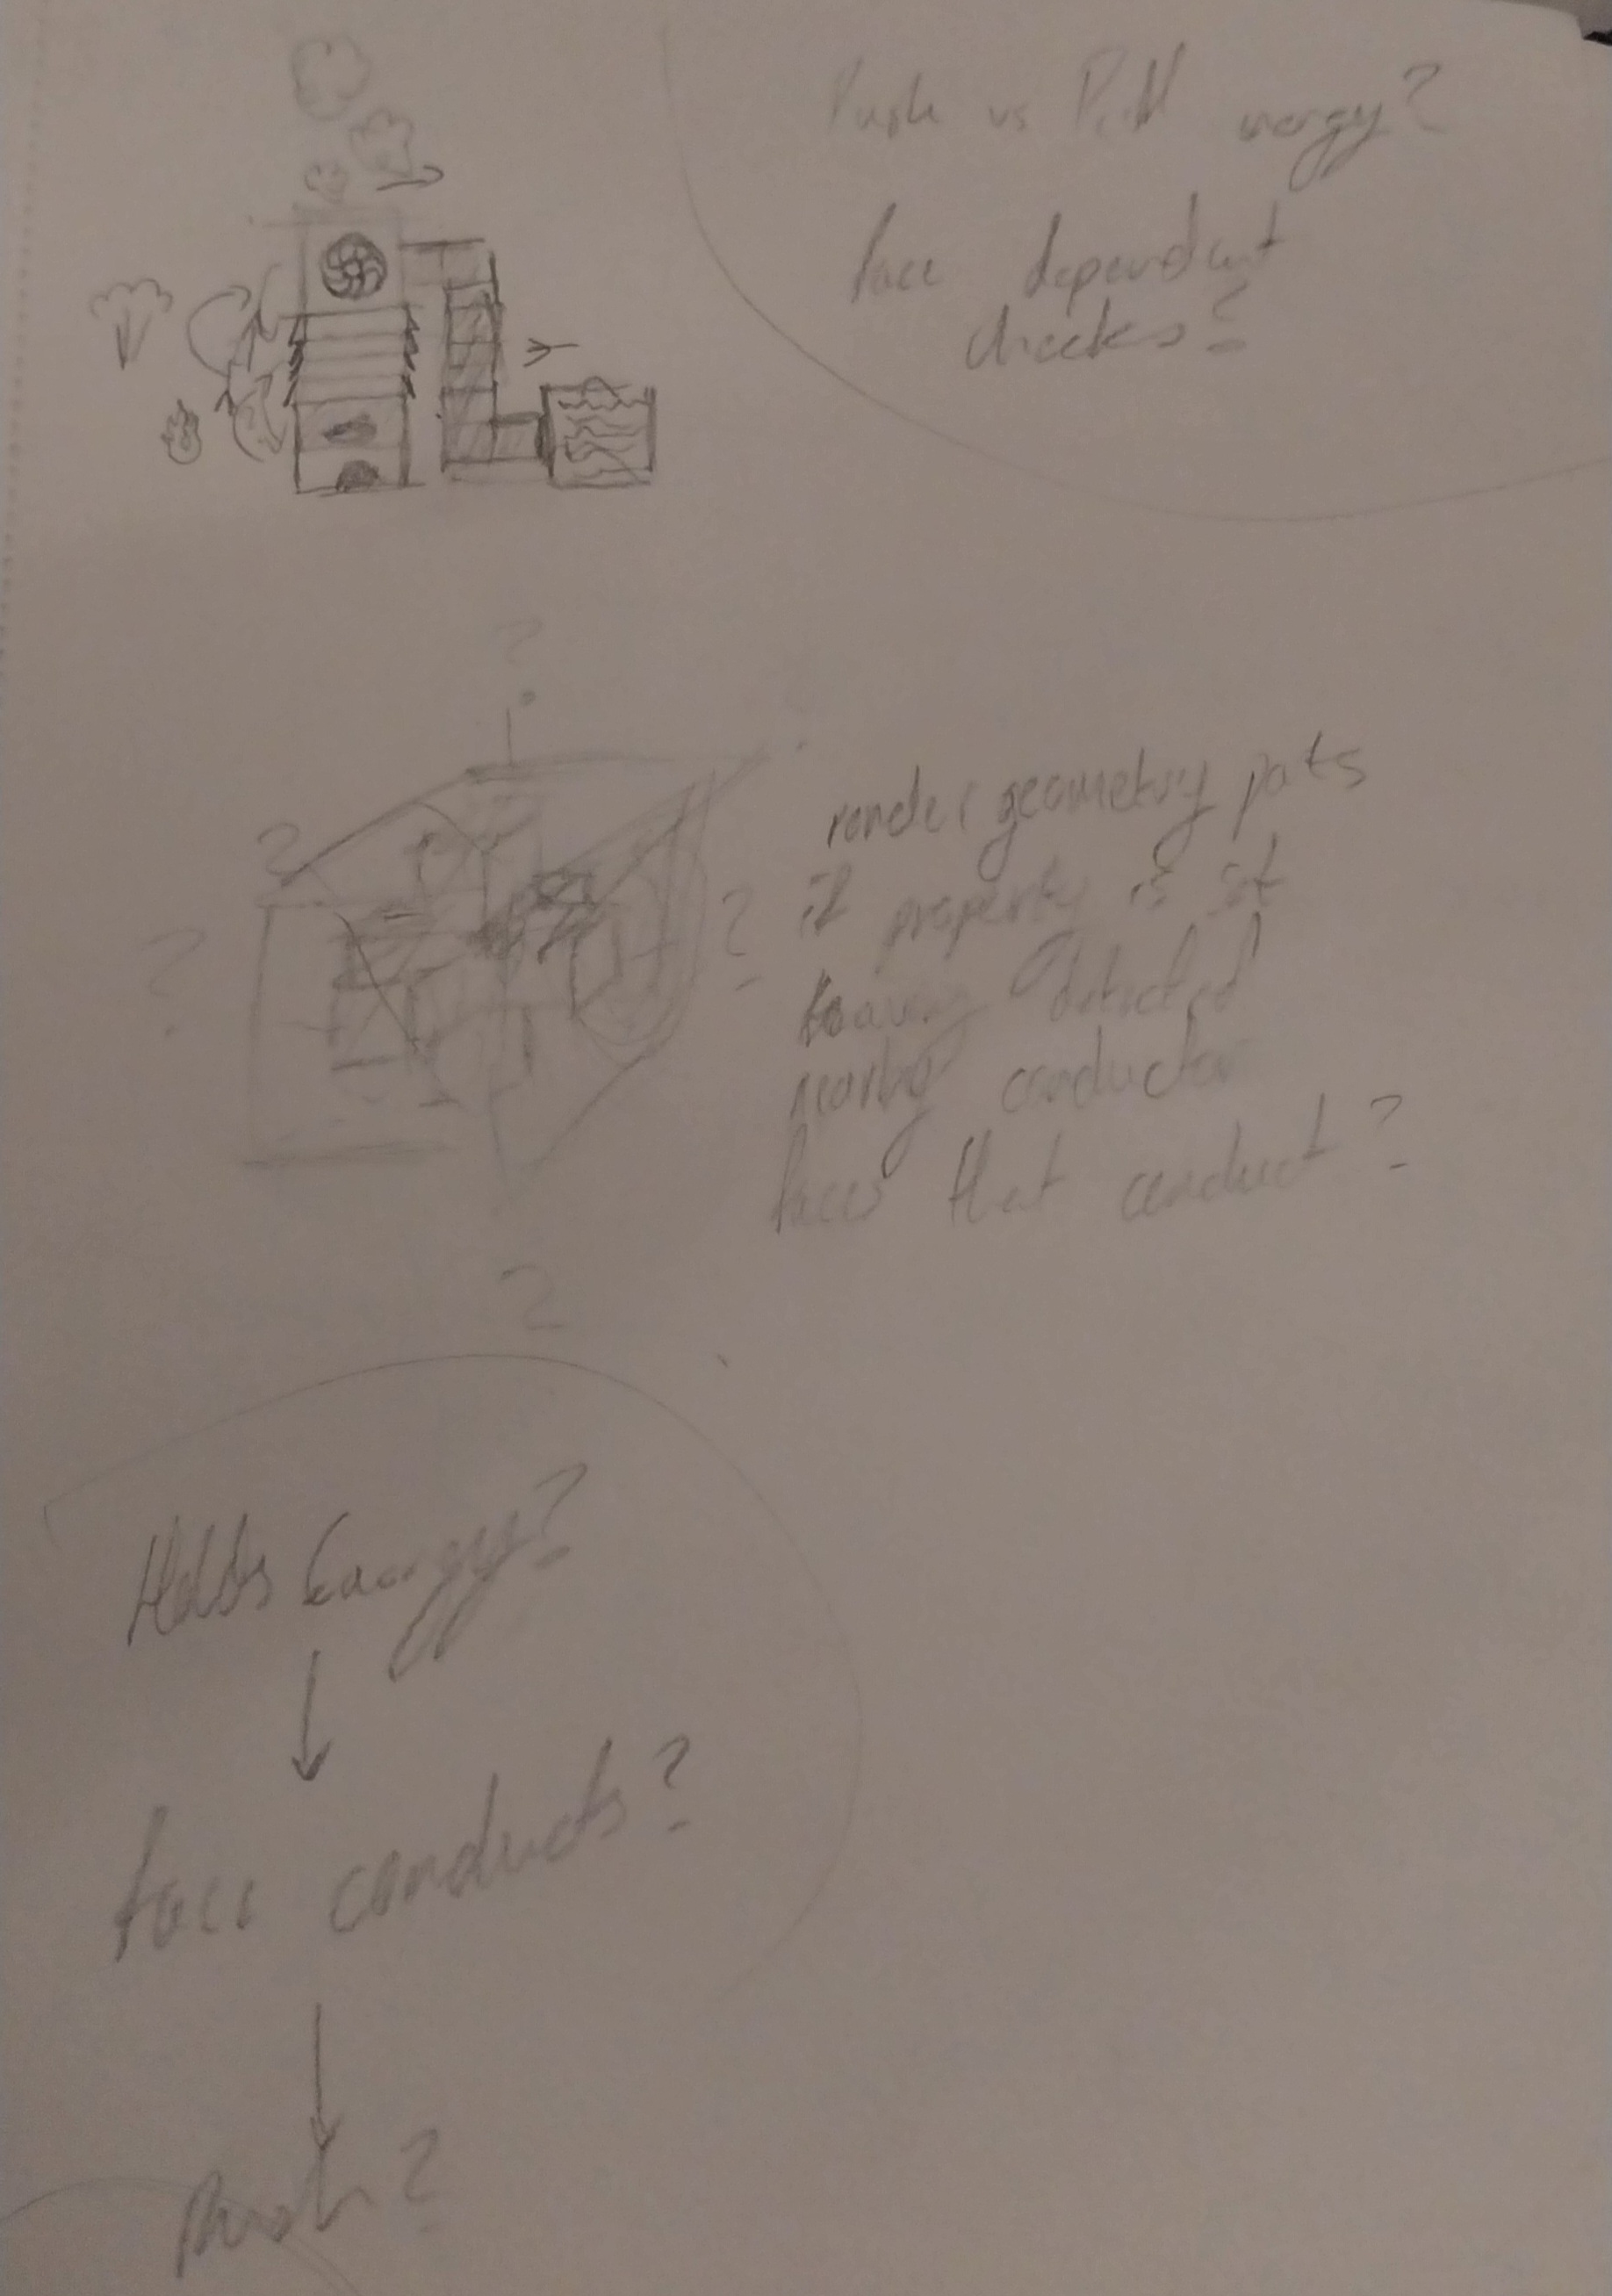 Push vs Pull energy?
face dependent
checks?
?
?
?
?
render geometry parts
if property is set
having detected
nearby conductor
faces that conduct?
?
Holds Energy?
face conducts?
Push?